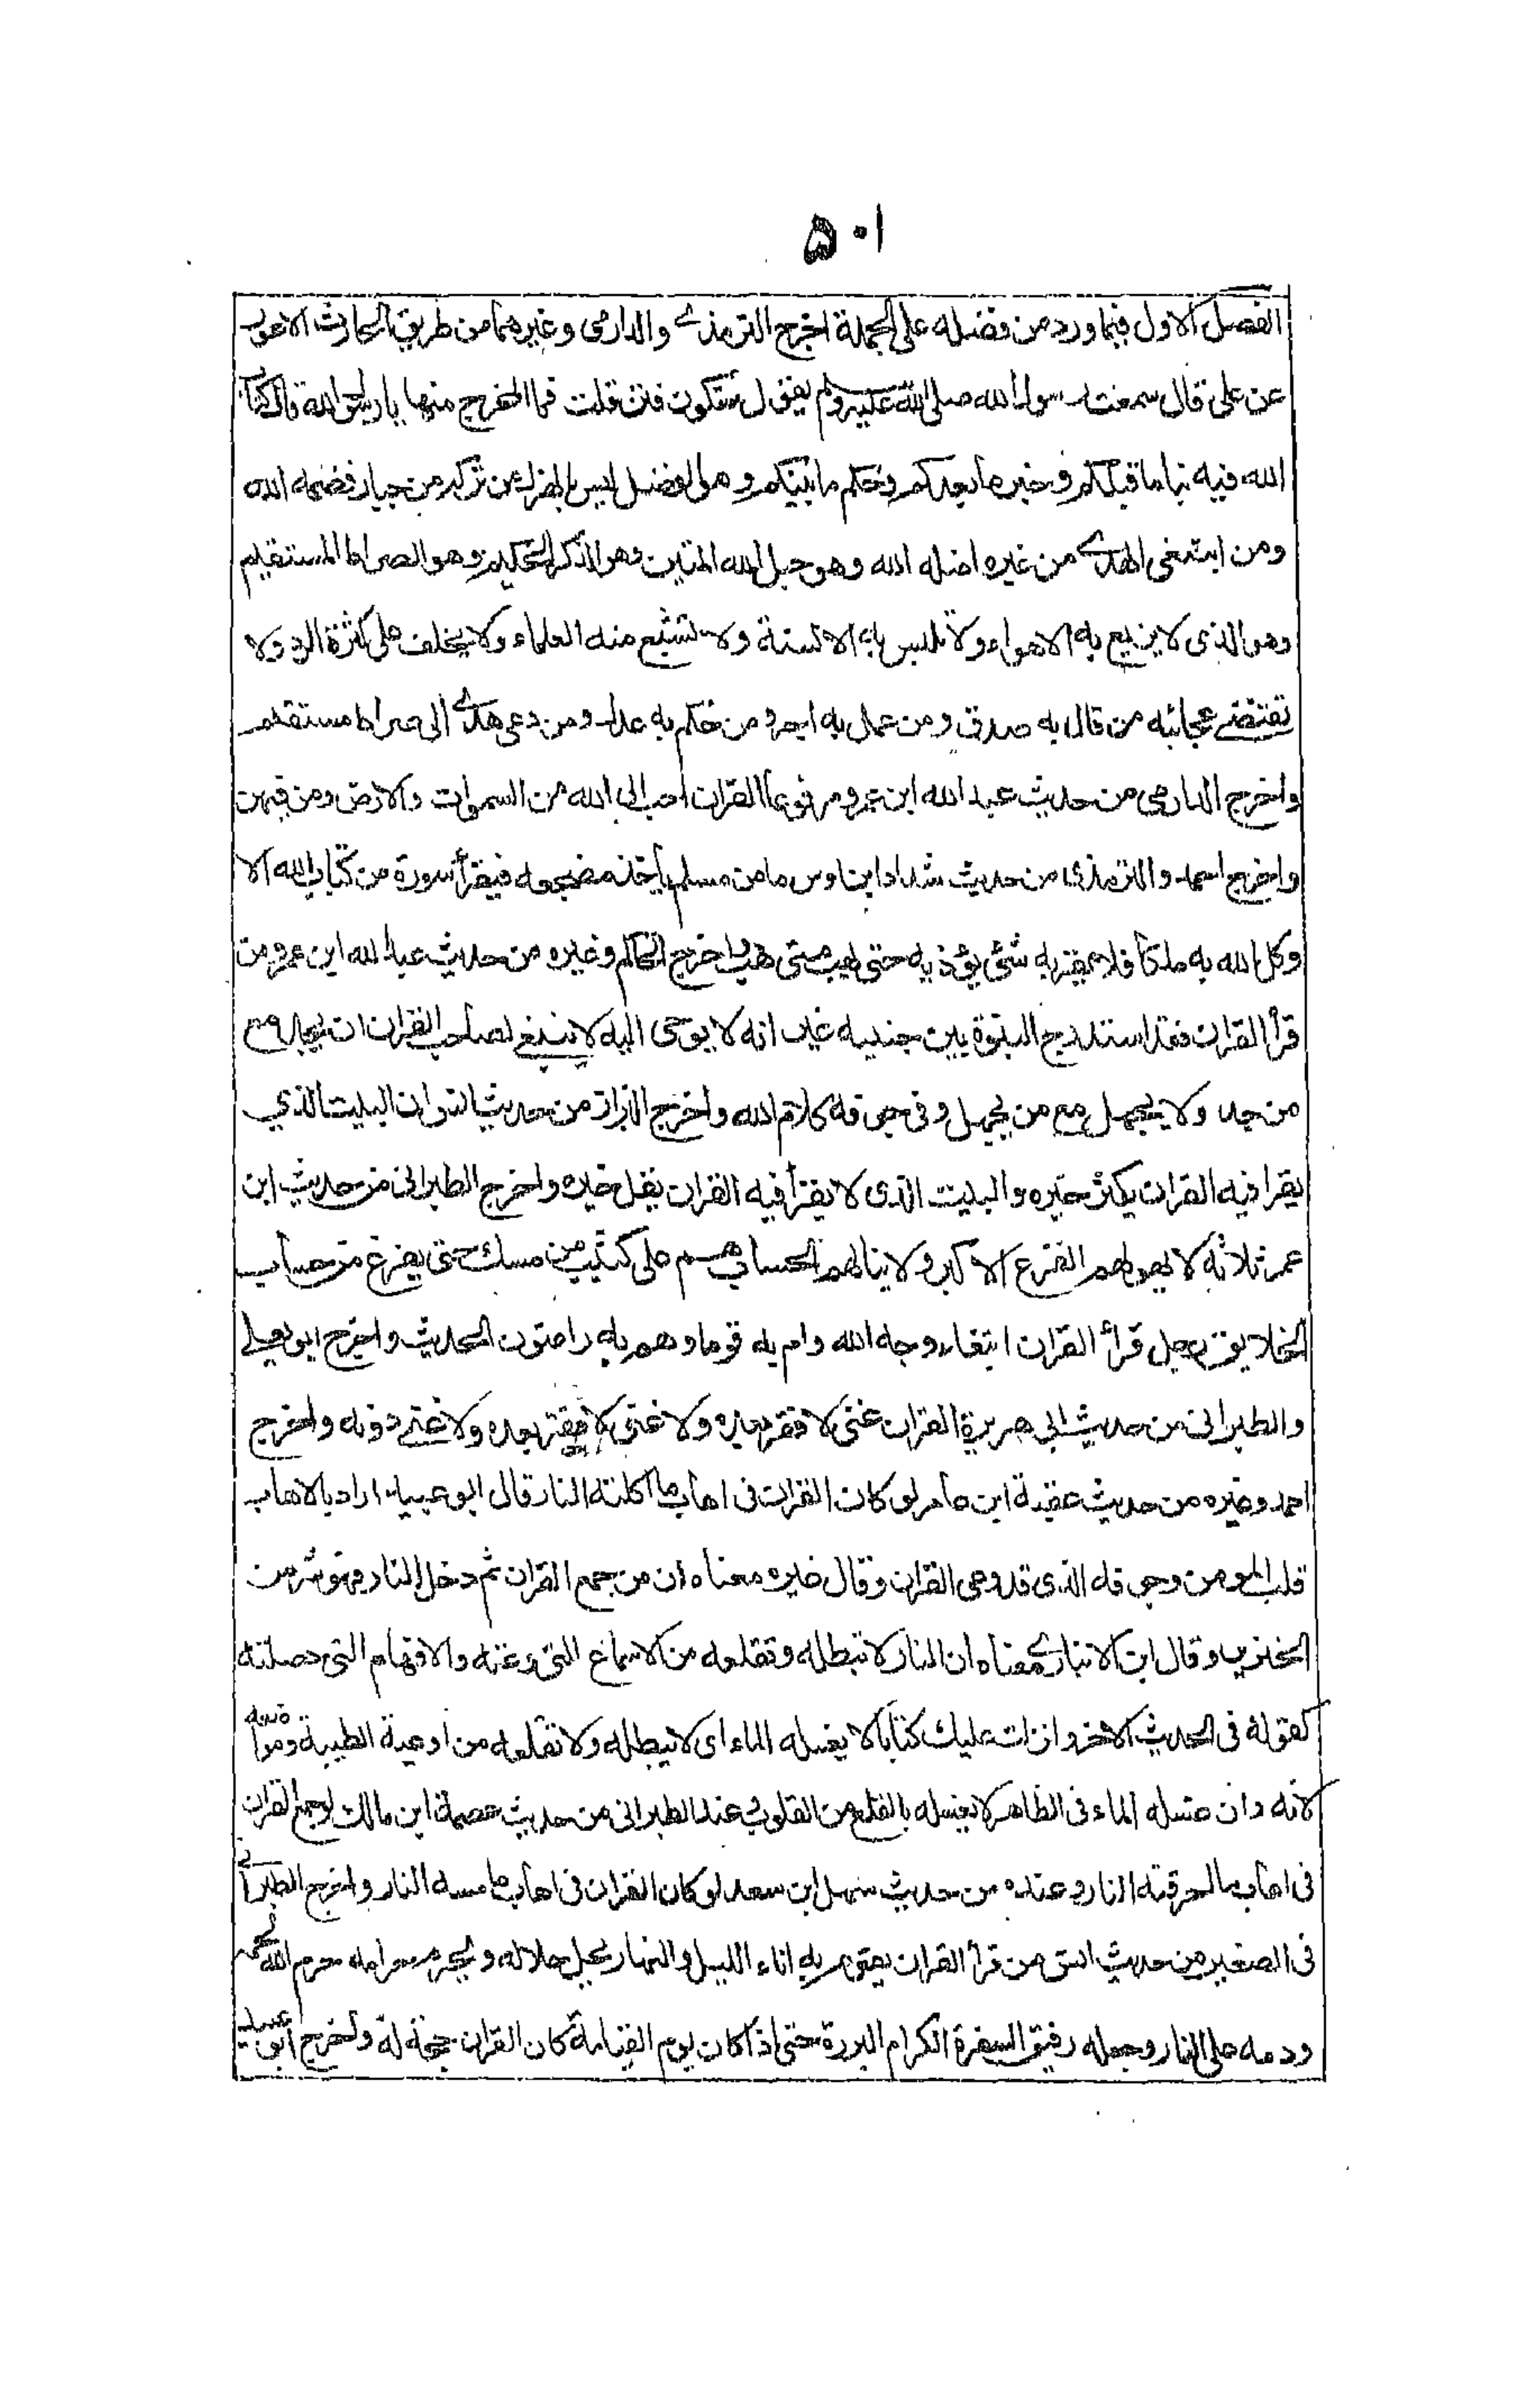 ٥٠١
الفصل الاول فيما ورد من فضله على الجملة اخرج الترمذى والدارمى وغيرهما من طريق الحارث الاعور
عن على قال سمعت رسول الله صلى الله عليه وسلم يقول ستكون فتن قلت فما المخرج منها يا رسول الله قال كتاب
الله فيه نبا ما قبلكم وخبر ما بعدكم وحكم ما بينكم وهو الفصل ليس بالهزل من تركه من جبار قصمه الله
ومن ابتغى الهدى من غيره اضله الله وهو حبل الله المتين وهو الذكر الحكيم وهو الصراط المستقيم
وهو الذى لا يزيغ به الاهواء ولا تلبس به الالسنة ولا تشبع منه العلماء ولا يخلق على كثرة الرد ولا
تنقضے عجائبه من قال به صدق ومن عمل به اجر ومن حكم به عدل ومن دعى هدى الى صراط مستقيم
واخرج الدارمى من حديث عبد الله ابن عمرو مرفوعا القران احب الى الله من السموات والارض ومن فيهن
واخرج احمد والترمذى من حديث شداد ابن اوس ما من مسلم ياخذ مضجعه فيقرأ سورة من كتاب الله الا
وكل الله به ملكا فلا يقربه شئ يؤذيه حتى يهب متى هب واخرج الحاكم وغيره من حديث عبد الله ابن عمرو من
قرأ القران فقد استدرج النبوة بين جنبيه غير انه لا يوحى اليه لا ينبغى لصاحب القران ان يجد مع
من جد ولا يجهل مع من يجهل وفى جوفه كلام الله واخرج البزار من حديث انس ان البيت الذي
يقرا فيه القران يكثر خيره والبيت الذى لا يقرأ فيه القران يقل خيره واخرج الطبرانى من حديث ابن
عمر ثلاثة لا يهولهم الفزع الاكبر ولا ينالهم الحساب هم على كثيب من مسك حتى يفرغ من حساب
الخلايق رجل قرأ القران ابتغاء وجه الله وام به قوما وهم به راضون الحديث واخرج ابو يعلى
والطبرانى من حديث ابى هريرة القران غنى لا فقر بعده ولا غنى دونه واخرج
احمد وغيره من حديث عقبة ابن عامر لو كان القران فى اهاب ما اكلته النار قال ابو عبيد اراد بالاهاب
قلب المومن وجوفه الذى قد وعى القران وقال غيره معناه ان من جمع القران ثم دخل النار فهو شر من
الخنزير وقال ابن الانبارى معناه ان النار لا تبطله وتقلعه من الاسماع التى وعته والافهام التى حصلته
كقوله فى الحديث الاخر وانزلت عليك كتابا لا يغسله الماء اى لا يبطله ولا تقلعه من اوعية الطيبة ومواضعه
لانه وان غسله الماء فى الظاهر لا يغسله بالقلع من القلوب عند الطبرانى من حديث عصمة ابن مالك لو جمع القران
فى اهاب ما احرقته النار وعنده من حديث سهل ابن سعد لو كان القران فى اهاب ما مسه النار واخرج الطبرانى
فى الصغير من حديث انس من قرأ القران يقوم به اناء الليل والنهار يحل حلاله ويحرم حرامه حرم الله لحمه
ودمه على النار وجعله رفيق السفرة الكرام البررة حتى اذا كان يوم القيامة كان القران حجة له واخرج ابو عبيد